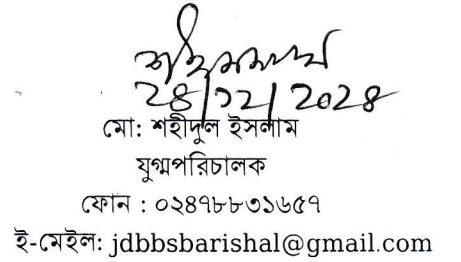 ২৪/১২/২০২৪
মো: শহীদুল ইসলাম
যুগ্মপরিচালক
ফোন : ০২৪৭৮৮৩১৬৫৭
ই-মেইল: jdbbsbarishal@gmail.com